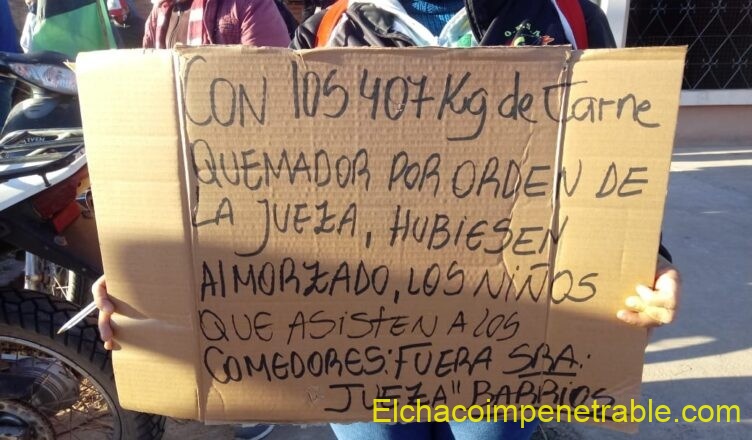 CON los 407 Kg de Carne
QUEMADOR POR ORDEN DE
LA JUEZA, HUBIESEN
AlMORZADO, LOS NIÑOS
QUE ASISTEN A LOS
COMEDORES: FUERA SRA:
JUEZA" BARRIOS
Elchacoimpenetrable.com